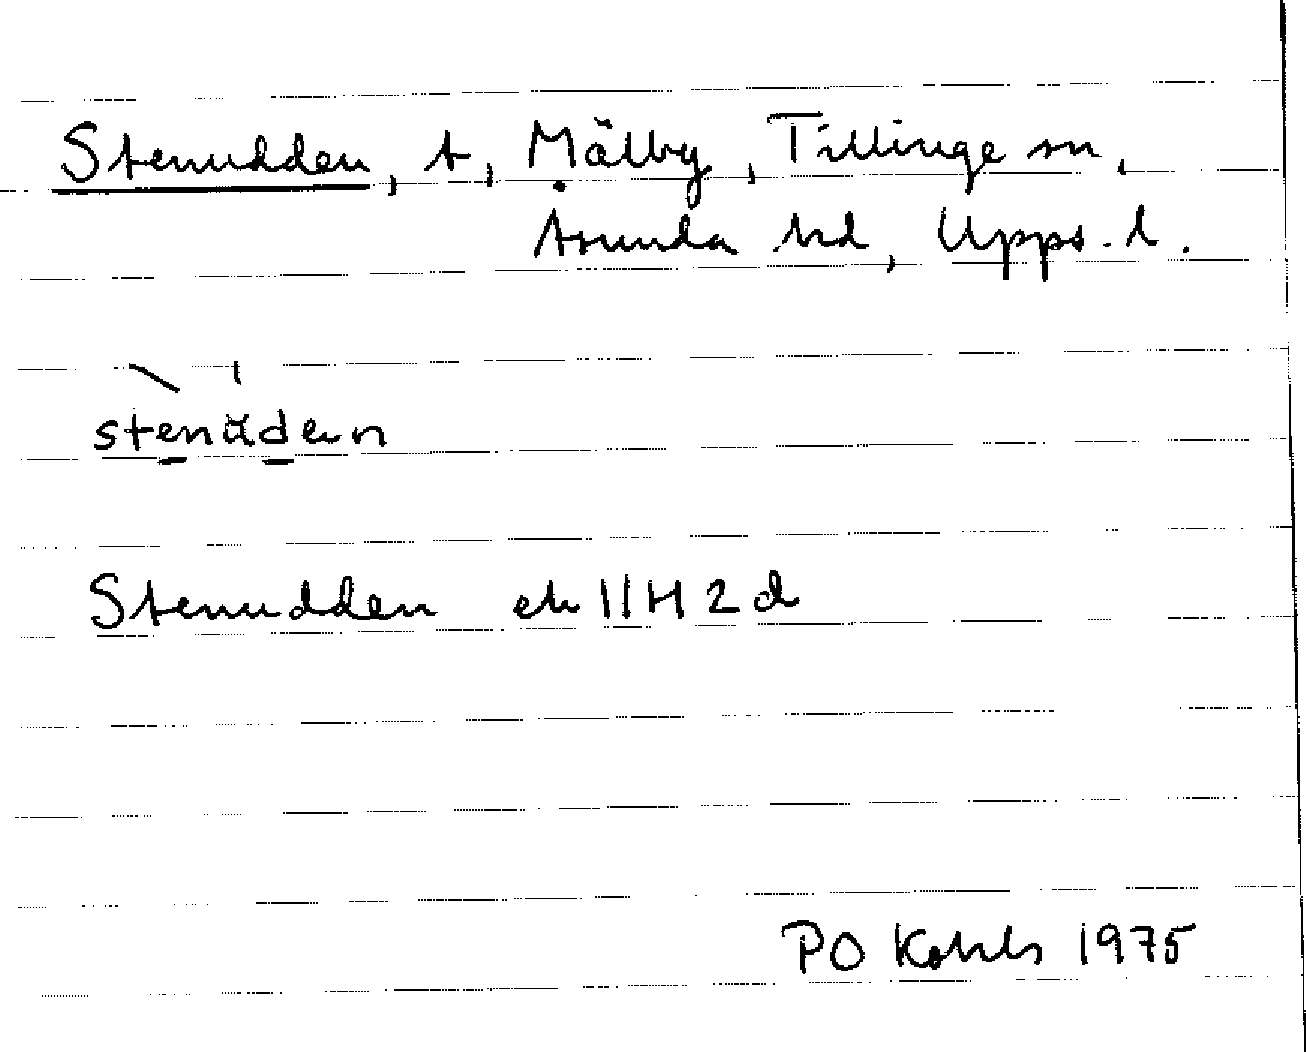 Stenudden, t, Mälby, Tillinge sn,
Åsunda hd, Upps. l.
stenüden
Stenudden ek 11H 2d
PO Kohls 1975